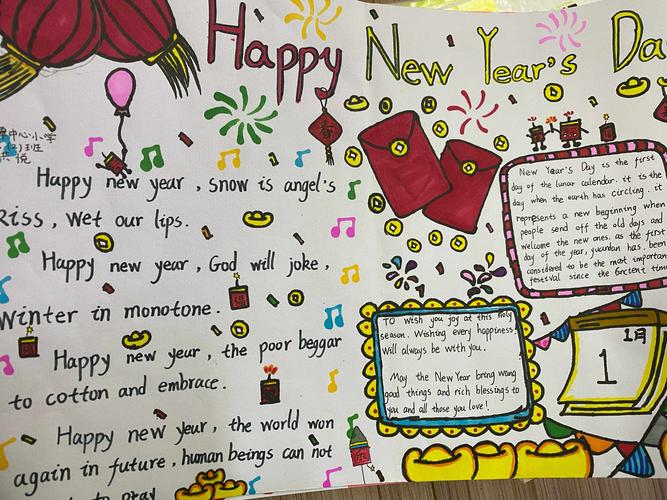 Happy New Year's Da
中心小学
班
悦
春
Happy new year, snow is angel's
kiss, wet our lips.
Happy new year, God will joke,
winter in monotone.
Happy new year, the poor beggar
to cotton and embrace.
Happy new year, the world won
again in future, human beings can not
to pray
New Year's Day is the first
day of the lunar calendar. it is the
day when the earth has circling. it
represents a new beginning when
people send off the old days and
welcome the new ones. as the first
day of the year, yuandan has been
considered to be the most important
festival since the ancient time
To wish you joy at this holy
season. Wishing every happiness
will always be with you.
May the New Year bring wang
good things and rich blessings to
you and all those you love!
1月
1